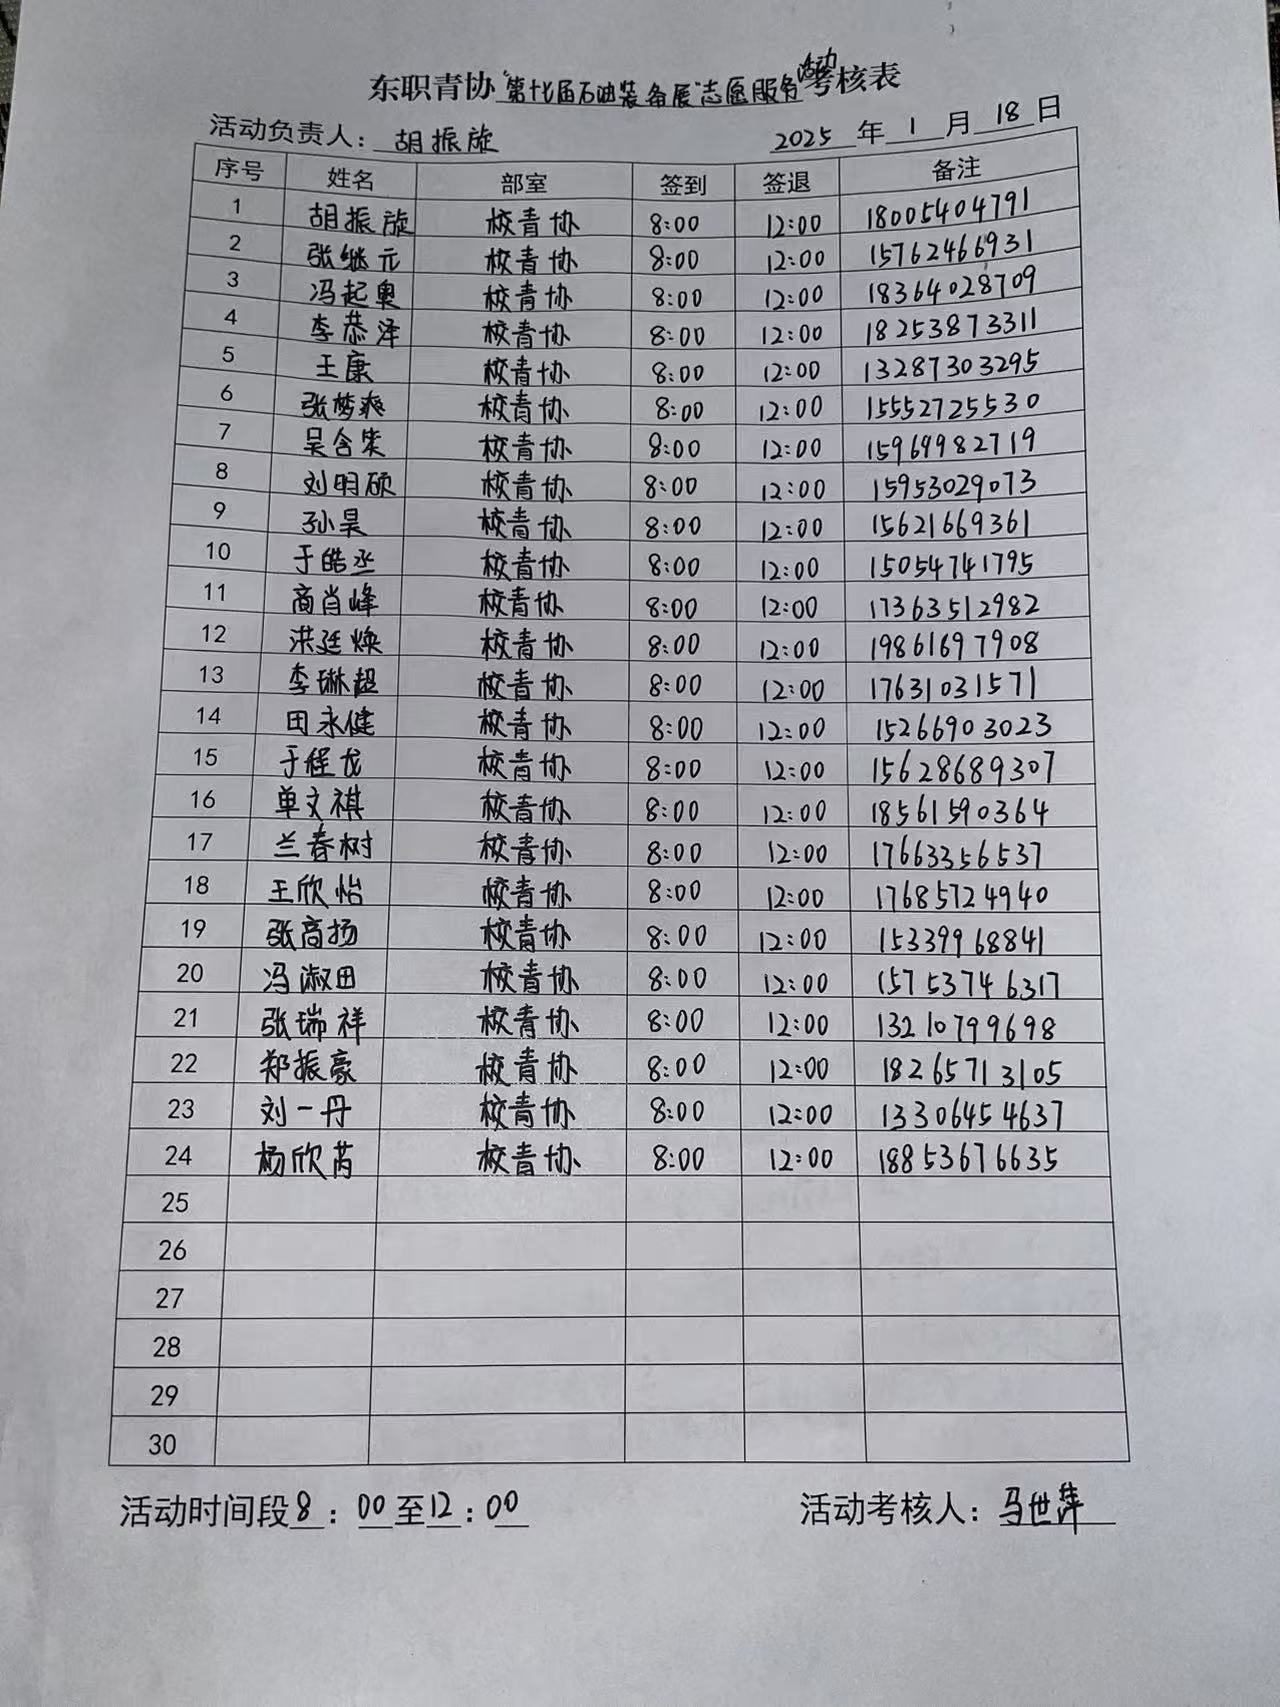 东职青协"第十七届石油装备展"志愿服务活动考核表
活动负责人：胡振旋 2025年1月18日
序号 姓名 部室 签到 签退 备注
1 胡振旋 校青协 8:00 12:00 18005404791
2 张继元 校青协 8:00 12:00 15762466931
3 冯起奥 校青协 8:00 12:00 18364028709
4 李恭泽 校青协 8:00 12:00 18253873311
5 王康 校青协 8:00 12:00 13287303295
6 张梦爽 校青协 8:00 12:00 15552725530
7 吴含 校青协 8:00 12:00 15969982719
8 刘明硕 校青协 8:00 12:00 15953029073
9 孙昊 校青协 8:00 12:00 15621669361
10 于皓丞 校青协 8:00 12:00 15054741795
11 商肖峰 校青协 8:00 12:00 17363512982
12 洪廷焕 校青协 8:00 12:00 19861697908
13 李琳超 校青协 8:00 12:00 17631031571
14 田永健 校青协 8:00 12:00 15266903023
15 于程龙 校青协 8:00 12:00 15628689307
16 单文祺 校青协 8:00 12:00 18561590364
17 兰春树 校青协 8:00 12:00 17663356537
18 王欣怡 校青协 8:00 12:00 17685724940
19 张高扬 校青协 8:00 12:00 15339968841
20 冯淑田 校青协 8:00 12:00 15753746317
21 张瑞祥 校青协 8:00 12:00 13210799698
22 郑振豪 校青协 8:00 12:00 18265713105
23 刘一丹 校青协 8:00 12:00 13306454637
24 杨欣芮 校青协 8:00 12:00 18853676635
25
26
27
28
29
30
活动时间段8：00至12：00 活动考核人：马世萍